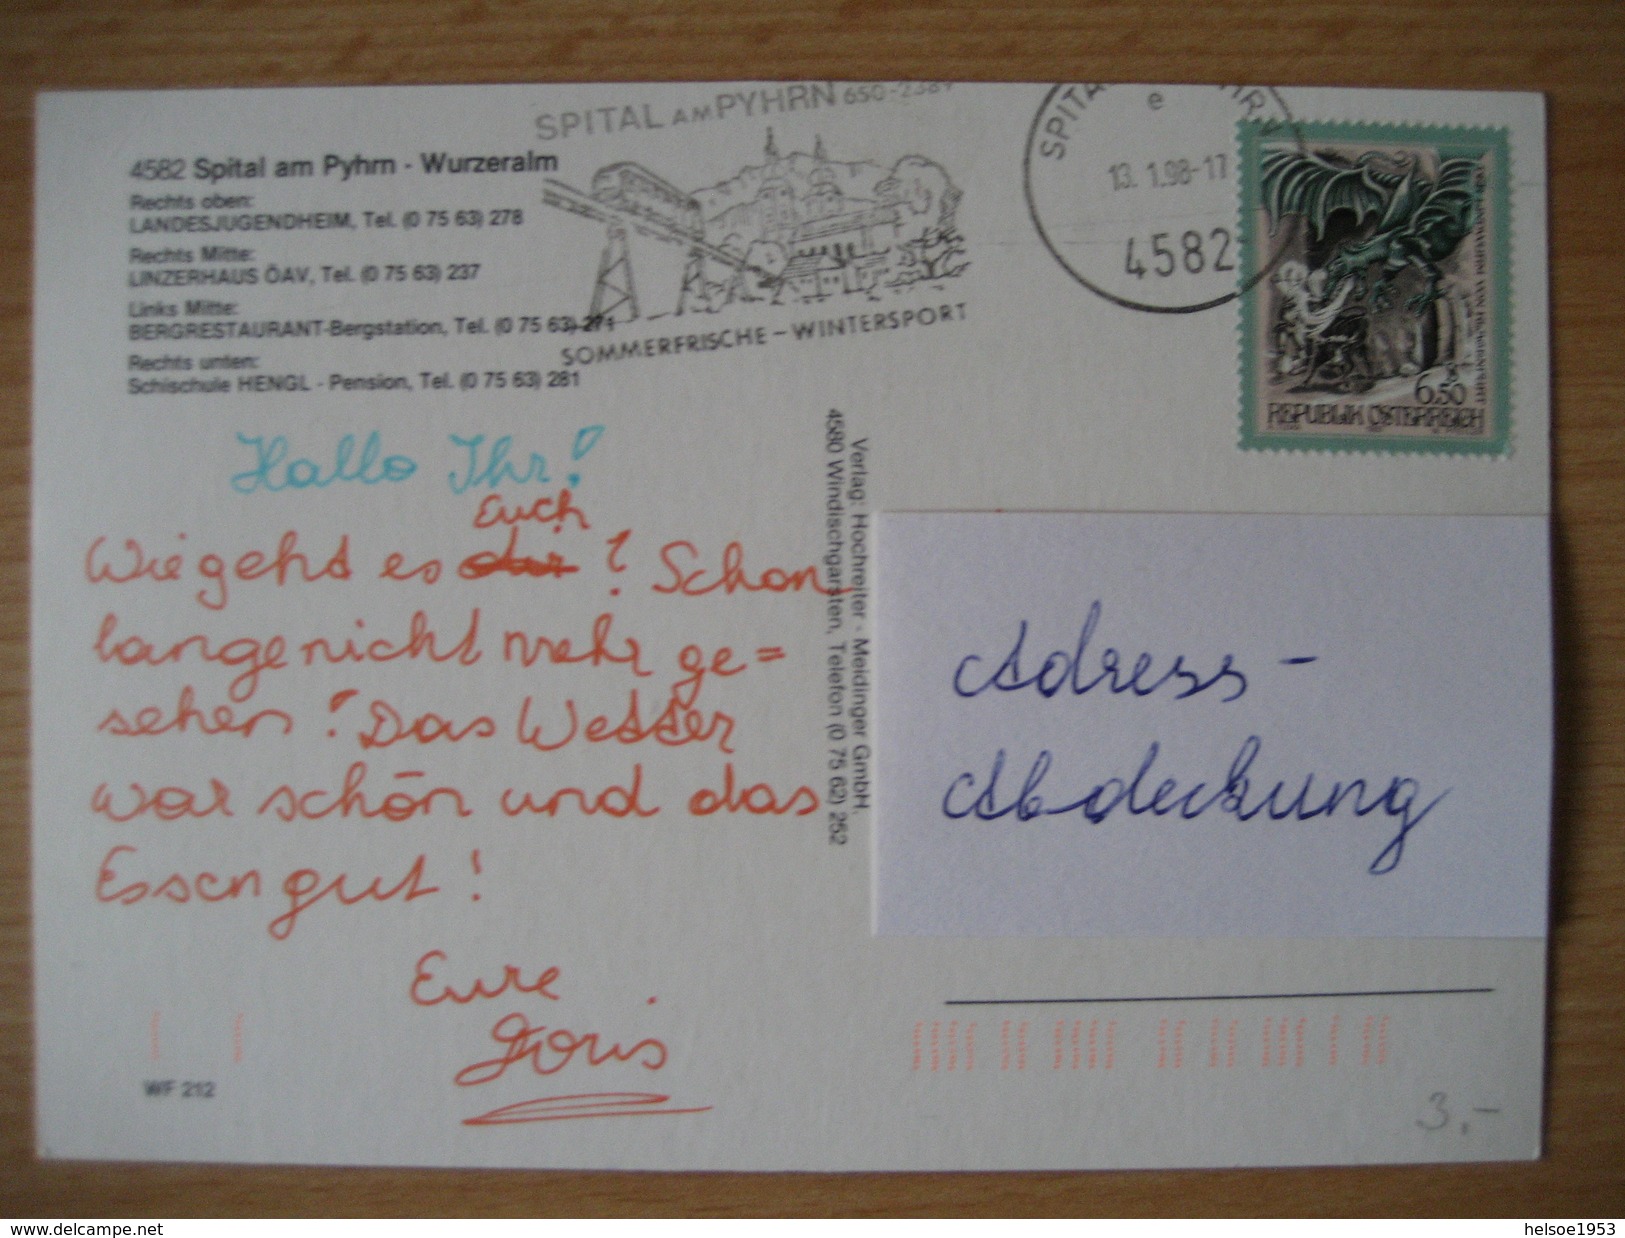 SPITAL AM PYHRN 650-2389
SPITA
e
13. 1.98-17
4582
4582 Spital am Pyhrn - Wurzeralm
Rechts oben:
LANDESJUGENDHEIM, Tel. (0 75 63) 278
Rechts Mitte:
LINZERHAUS ÖAV, Tel. (0 75 63) 237
Links Mitte:
BERGRESTAURANT-Bergstation, Tel. (0 75 63) 271
Rechts unten:
Schischule HENGL - Pension, Tel. (0 75 63) 281
SOMMERFRISCHE - WINTERSPORT
6.50
REPUBLIK ÖSTERREICH
Hallo Ihr!
Euch
Wie geht es dir? Schon
lange nicht mehr ge=
sehen! Das Wetter
war schön und das
Essen gut!
Eure
Doris
Verlag: Hochreiter - Meidinger GmbH.
4580 Windischgarsten, Telefon (0 75 62) 252
Adress-
Abdeckung
WF 212
3,-
www.delcampe.net
helsoe1953